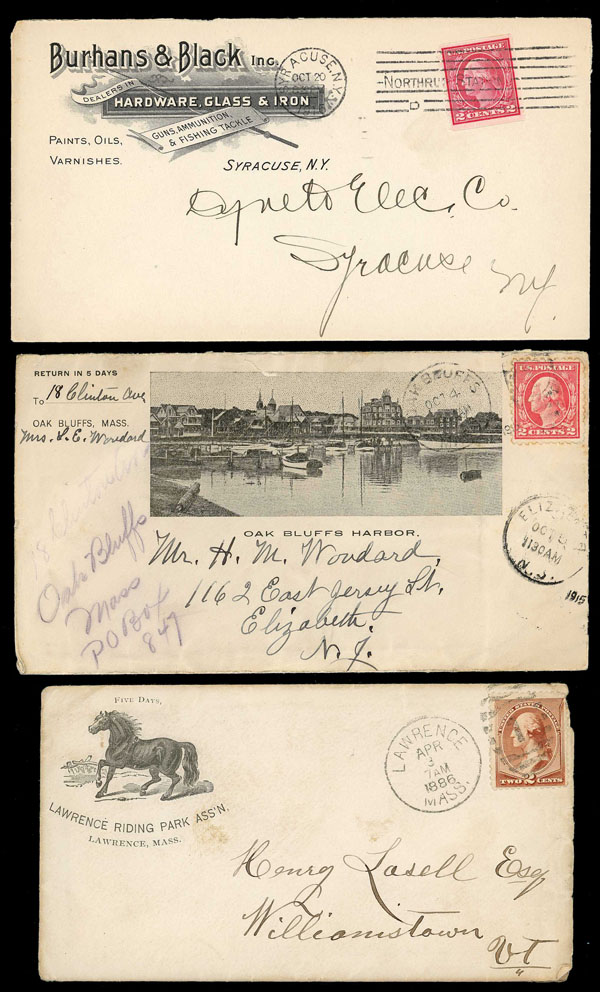 Burhans & Black Inc.
DEALERS IN
HARDWARE, GLASS & IRON
GUNS, AMMUNITION,
& FISHING TACKLE
PAINTS, OILS,
VARNISHES.
SYRACUSE, N.Y.
SYRACUSE, N.Y.
OCT 20
U.S. POSTAGE
2 CENTS 2
Elec. Co.
Syracuse
NY.
RETURN IN 5 DAYS
To 18 Clinton Ave
OAK BLUFFS, MASS.
Mrs. S. E. Woodard
OAK BLUFFS
OCT 4
U.S. POSTAGE
2 CENTS 2
OAK BLUFFS HARBOR.
18 Clinton
Oak Bluffs
Mass
PO Box
847
ELIZ
OCT
1130 AM
N.J.
1915
Mr. H. M. Woodard,
1162 East Jersey St.
Elizabeth,
N. J.
FIVE DAYS,
LAWRENCE RIDING PARK ASS'N.
LAWRENCE, MASS.
LAWRENCE
APR
3
7AM
1886
MASS.
UNITED STATES POSTAGE
TWO 2 CENTS
Henry Lasell Esq
Williamstown
VT